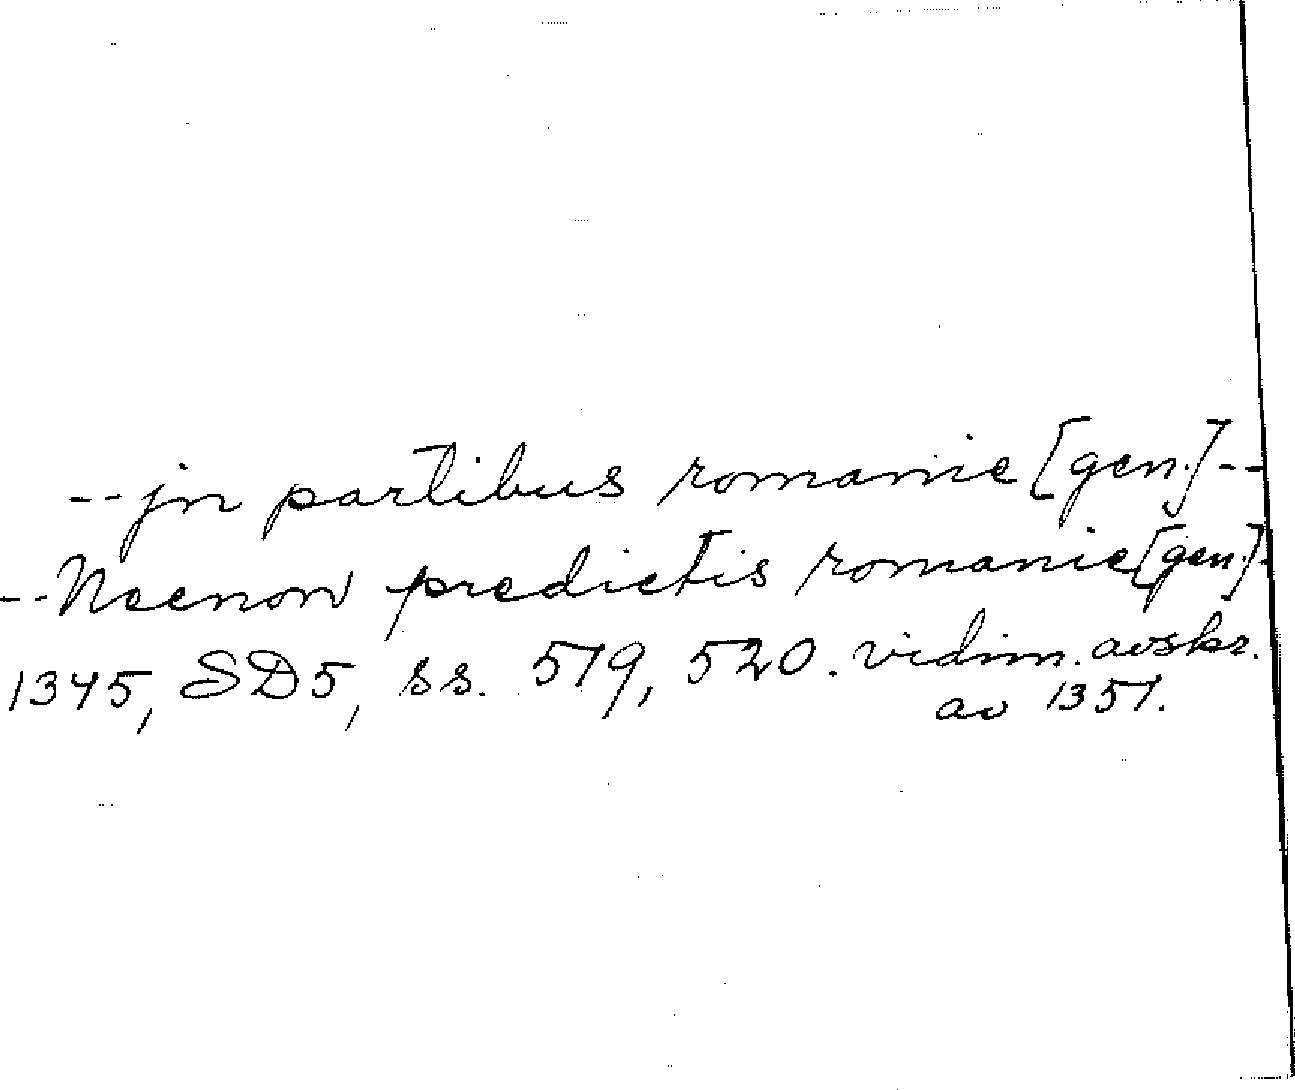 --jn partibus romanie [gen.]--
--Necnon predictis romanie [gen.]-
1345, SD5, ss. 519, 520. vidim. avskr.
av 1351.